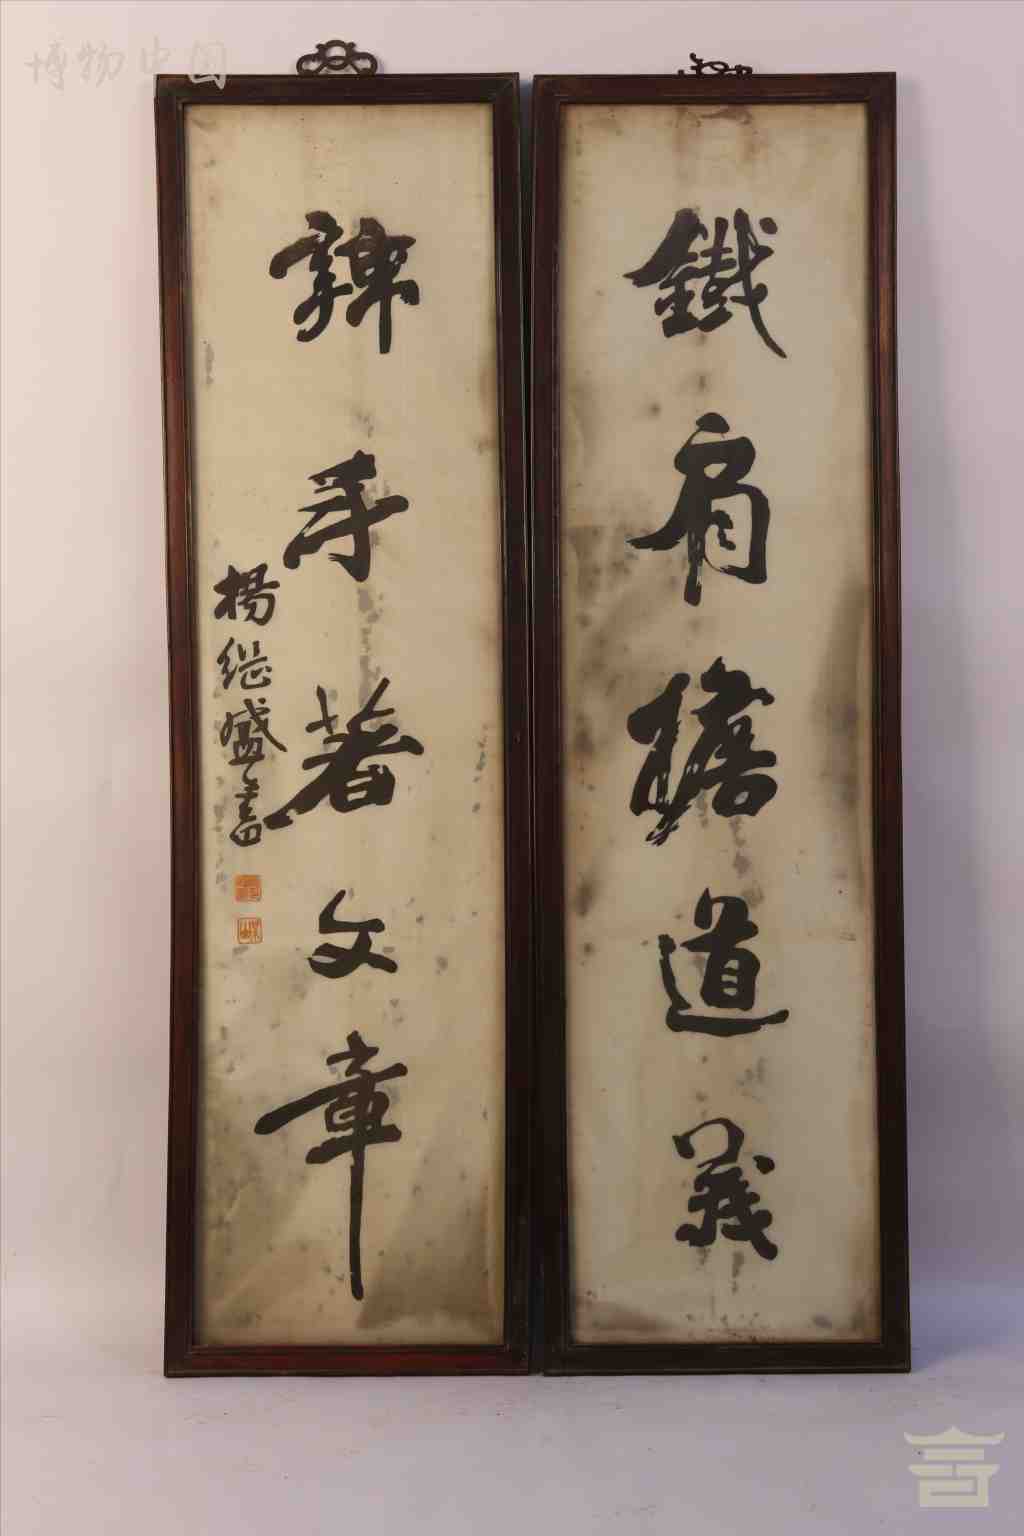 博物中国
鐵肩擔道義
辣手著文章
楊継盛書